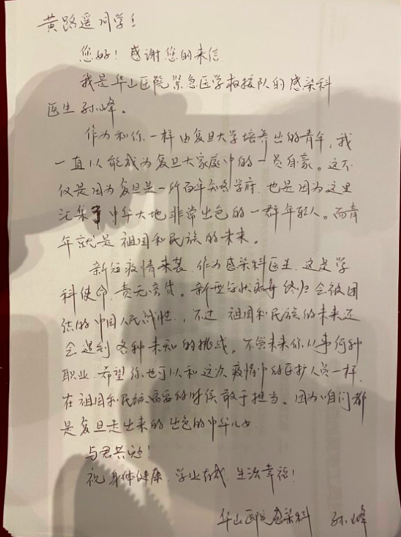 黄路遥同学:
您好！感谢您的来信
我是华山医院紧急医学救援队的感染科
医生孙峰。
作为和你一样由复旦大学培养出的青年，我
一直以能成为复旦大家庭中的一员自豪。这不
仅是因为复旦是一所百年名学府，也是因为这里
汇聚了中华大地非常出色的一群年轻人。而青
年就是祖国和民族的未来。
新冠疫情来袭，作为感染科医生，这是学
科使命，责无旁贷。新型冠状病毒终归会被团
结的中国人民战胜，不过祖国和民族的未来还
会遇到各种未知的挑战。不管未来你从事何种
职业，希望你也可以和这次疫情中的医护人员一样，
在祖国和民族需要的时候敢于担当。因为咱们都
是复旦走出来的出色的中华儿女
与君共勉！
祝身体健康，学业有成，生活幸福！
华山医院感染科 孙峰